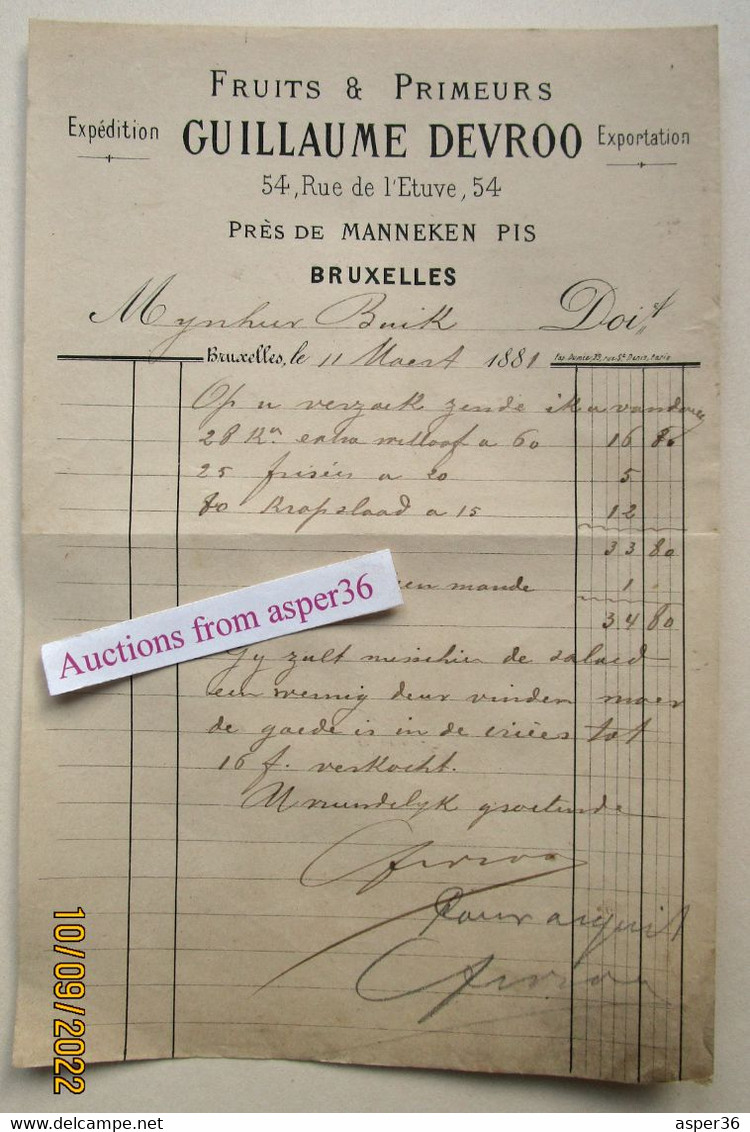 FRUITS & PRIMEURS
Expédition GUILLAUME DEVROO Exportation
54, Rue de l'Etuve, 54
PRÈS DE MANNEKEN PIS
BRUXELLES
Mynheer Buik Doit
Bruxelles, le 11 Maert 1881
Op u verzoek zende ik u vandaeg
28 Kn extra witloof a 60 16 80
25 frisées a 20 5
80 Kropslaad a 15 12
33 80
een mande 1
34 80
Gy zult misschien de salaed
een weinig deur vinden maer
de goede is in de criées tot
16 f. verkocht.
U vriendelyk groetende
Devroo
Pour acquit
Devroo
Auctions from asper36
10/09/2022
asper36